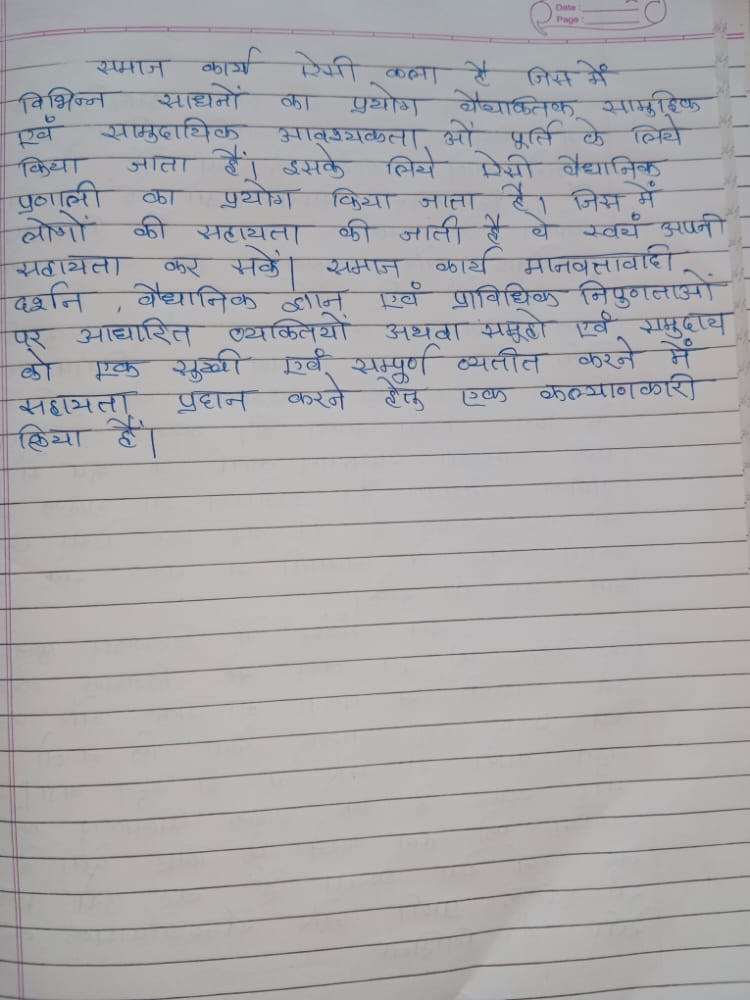 Date :
Page :
समाज कार्य ऐसी कला है जिस में
विभिन्न साधनों का प्रयोग वैयाक्तिक सामुहिक
एवं सामुदायिक आवश्यकता ओं पूर्ति के लिये
किया जाता हैं। इसके लिये ऐसी वैधानिक
प्रणाली का प्रयोग किया जाता है। जिस में
लोगों की सहायता की जाती है वे स्वयं अपनी
सहायता कर सकें। समाज कार्य मानवतावादी
दर्शन , वैधानिक ज्ञान एवं प्राविधिक निपुणताओं
पर आधारित व्यक्तियों अथवा समूहो एवं समुदाय
को एक सुखी एवं सम्पुर्ण व्यतीत करने में
सहायता प्रदान करने हेतु एक कल्याणकारी
क्रिया हैं।